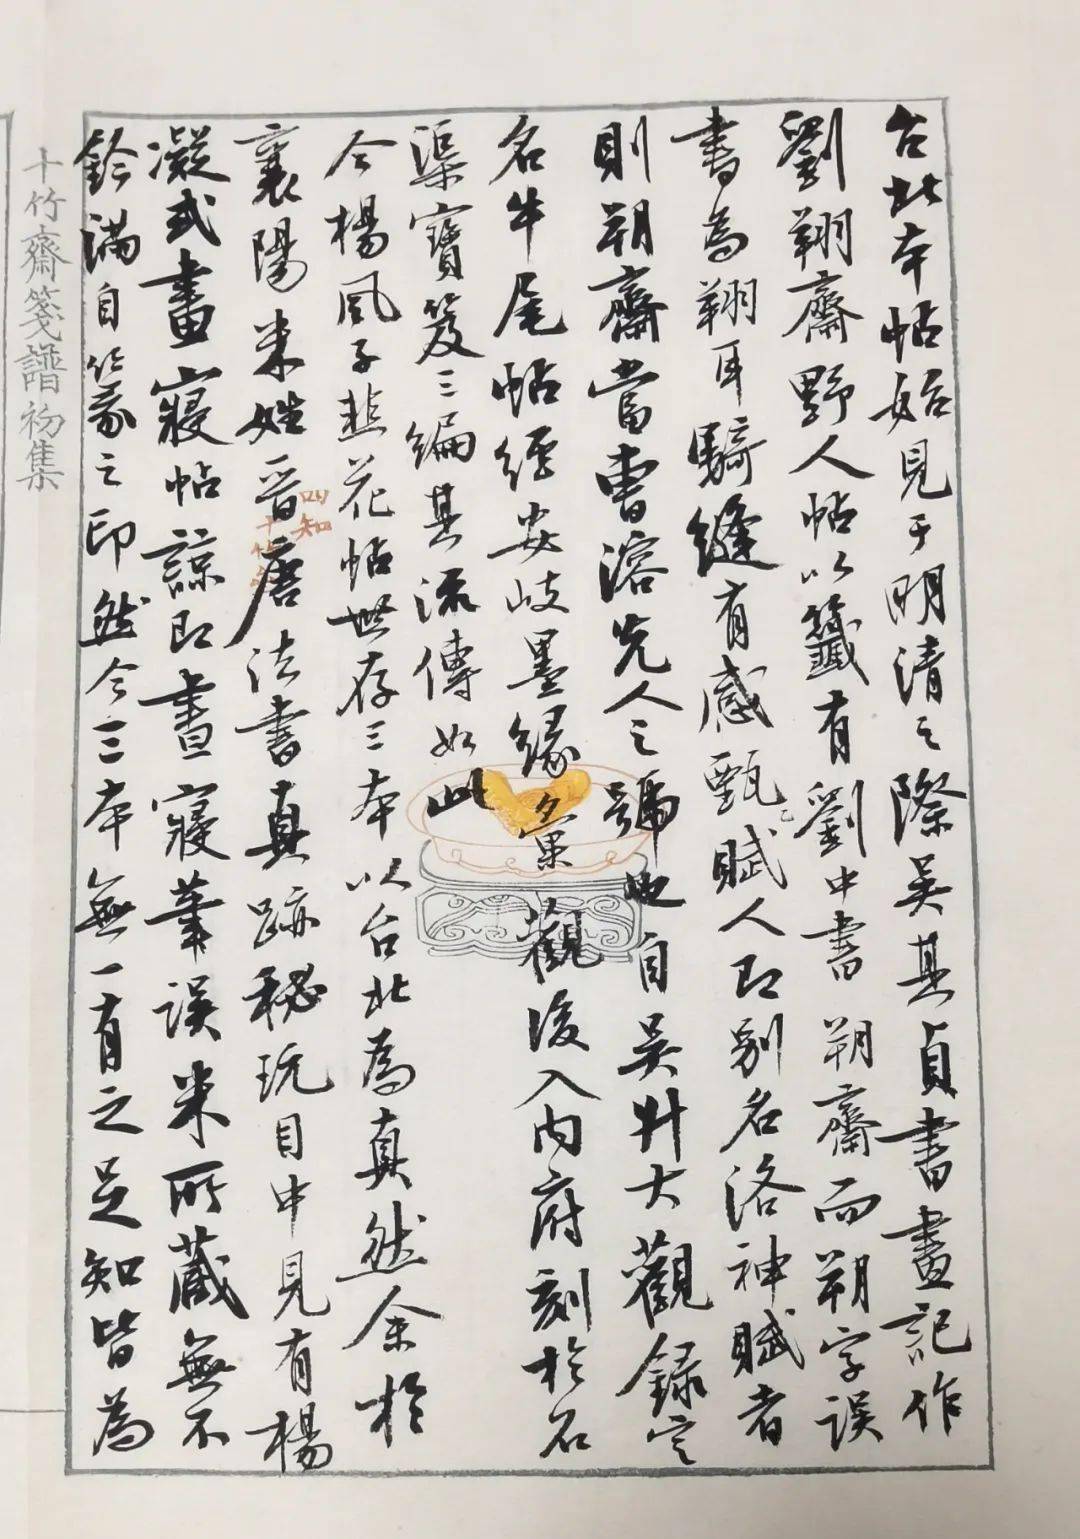 台北本帖始見于明清之際吳其貞書畫記作
劉翔齋野人帖以籤有劉中書朔齋而朔字誤
書為翔耳騎縫有感甄賦人即別名洛神賦者
則朔齋當曹溶先人之號也自吳升大觀錄定
名牛尾帖經安岐墨緣彙觀後入內府刻於石
渠寶笈三編其流傳如此
今楊風子韭花帖世存三本以台北為真然余於
襄陽米姓晉唐法書真跡秘玩目中見有楊
凝式畫寢帖諒即晝寢筆誤米所藏無不
鈐滿自篆之印然今三本無一有之足知皆為
十竹齋箋譜初集
四知